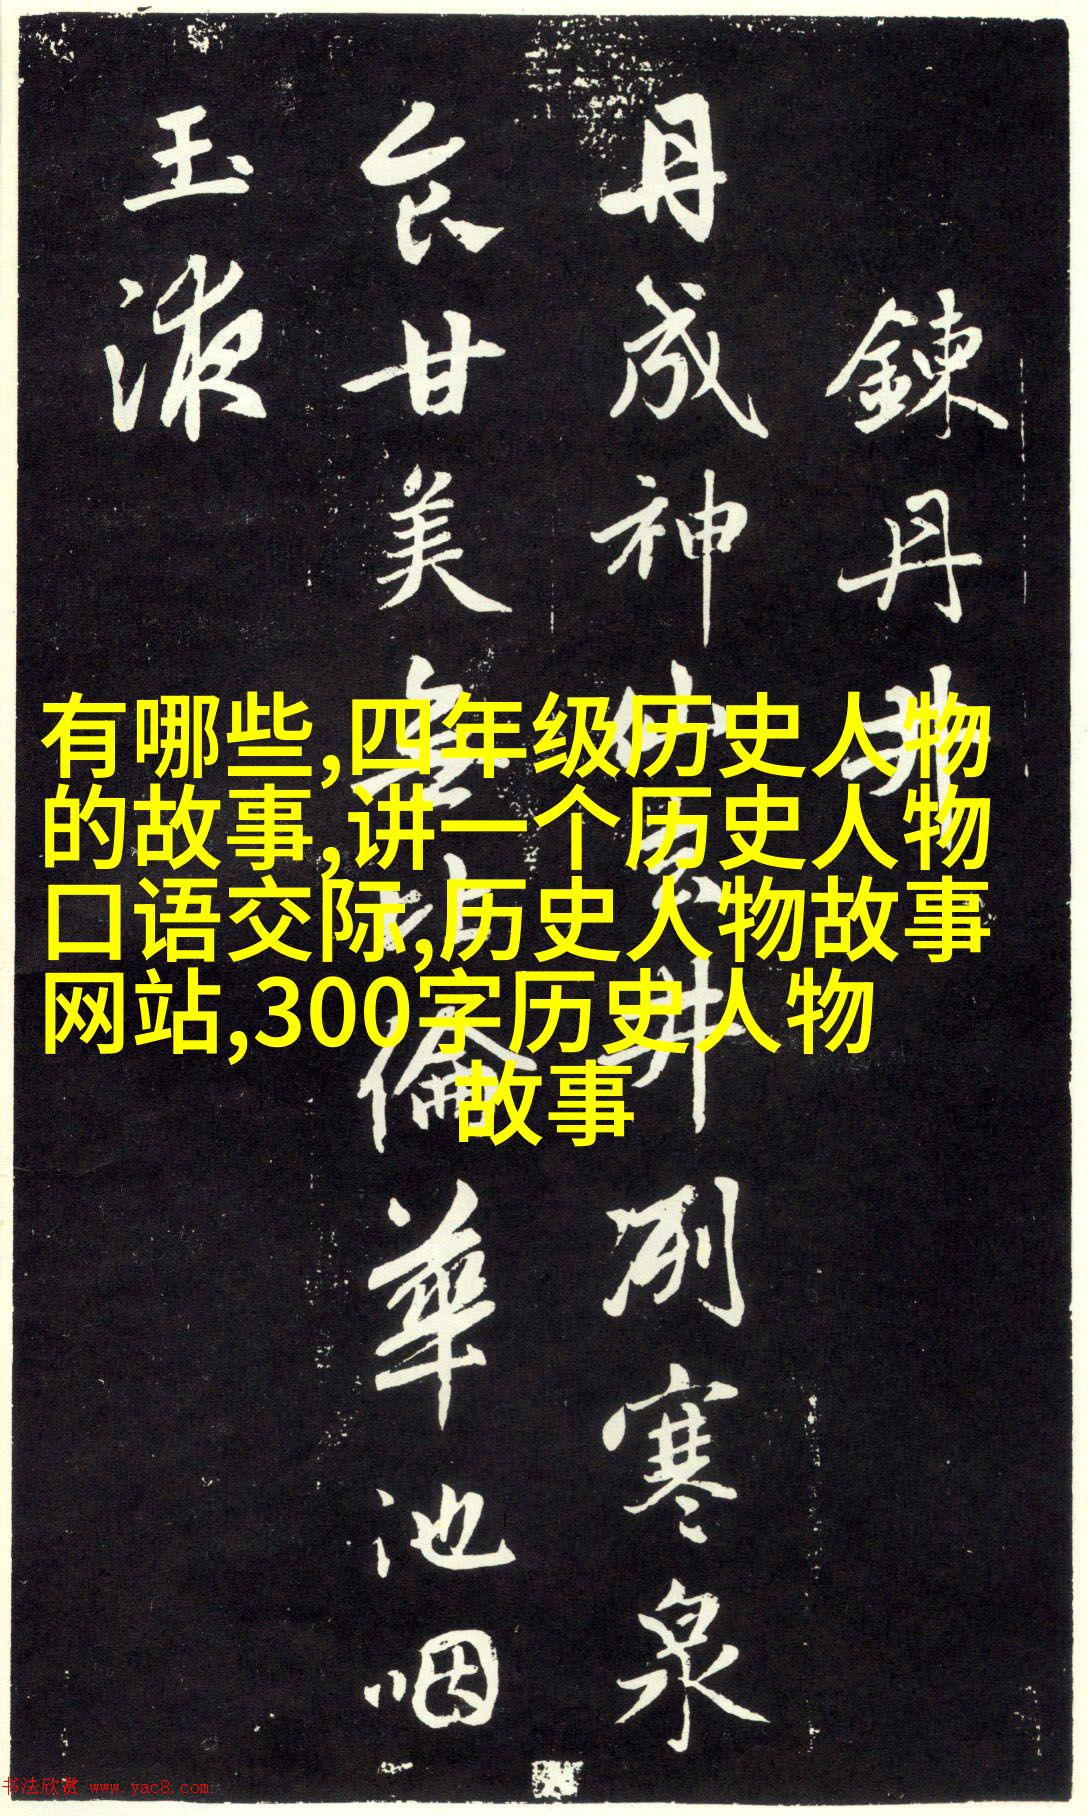 鍊丹井
丹成神仙去井冽寒泉
食甘美無比倫華池咽
玉液
有哪些,四年级历史人物
的故事,讲一个历史人物
口语交际,历史人物故事
网站,300字历史人物
故事
书法欣赏 www.yac8.com